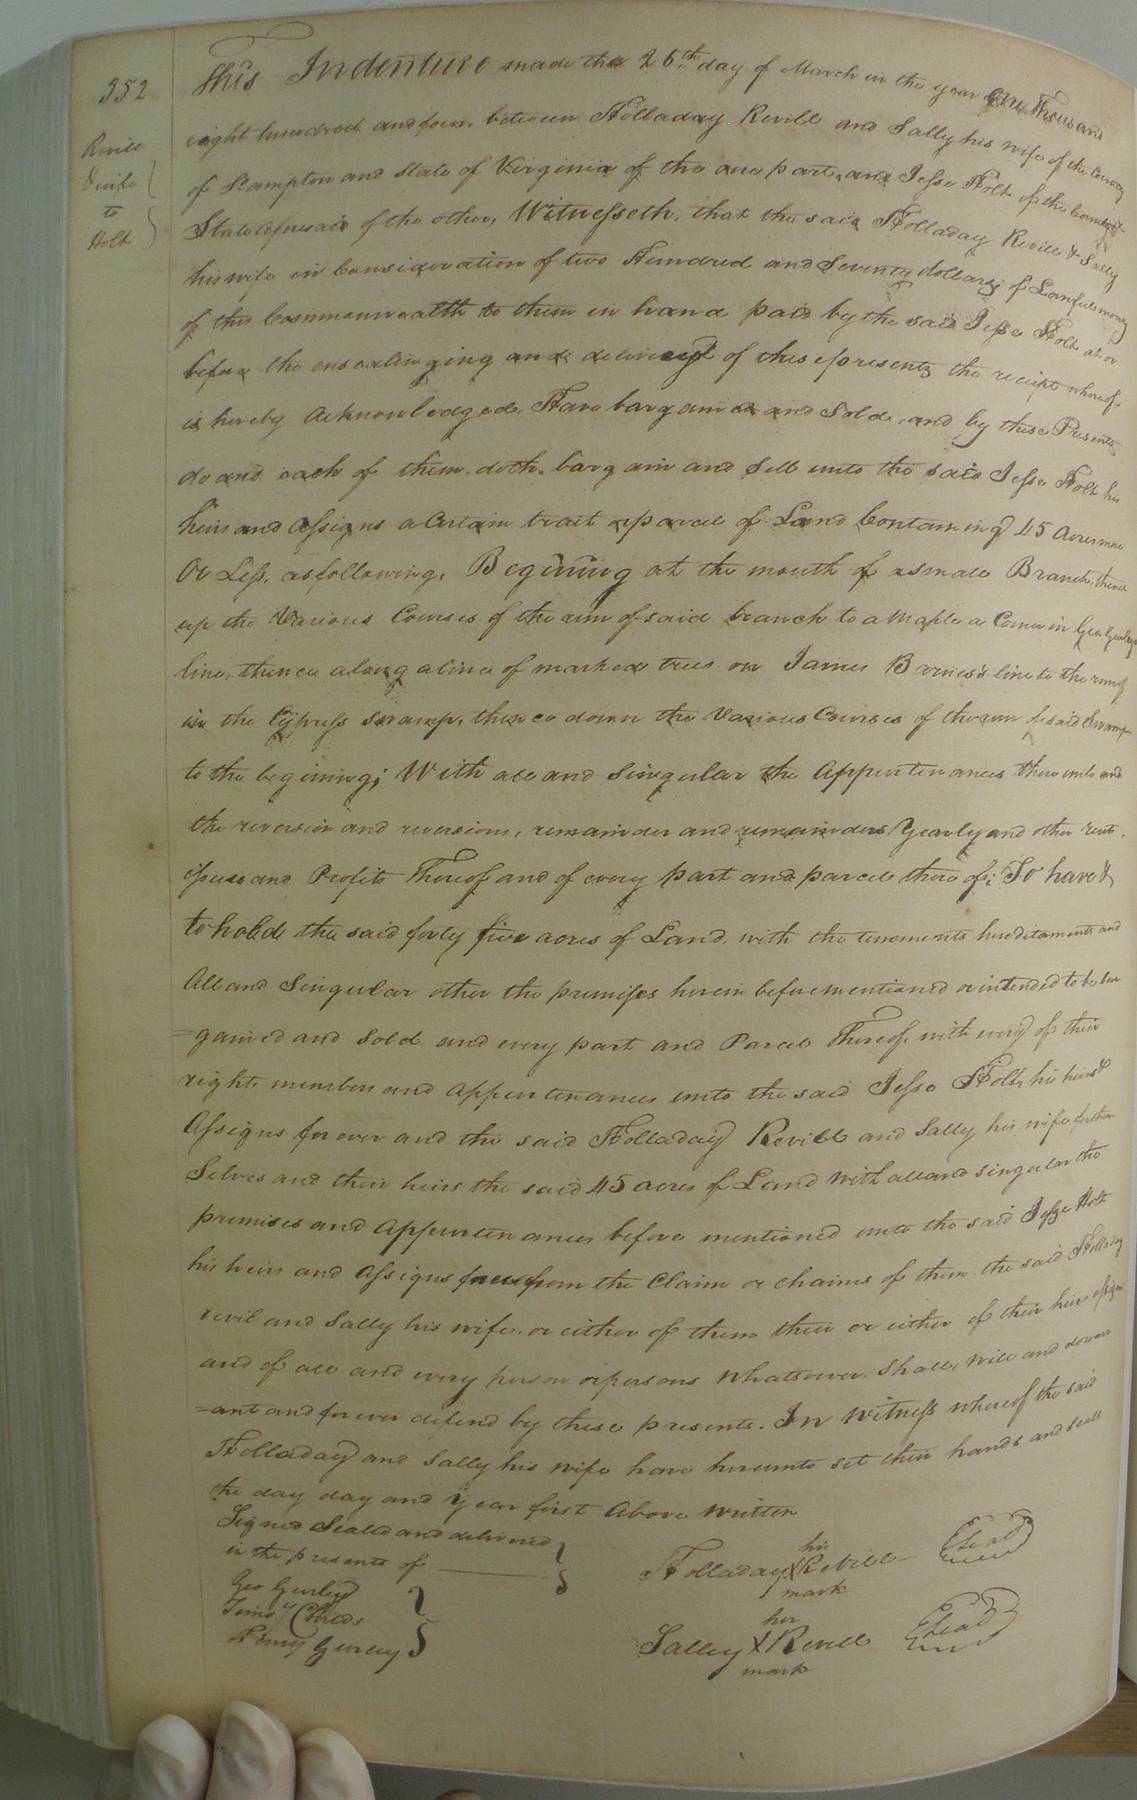 352
Revill
& wife
to
Holt
This Indenture made the 26th day of March in the year One Thousand
eight hundred and four, between Holladay Revill and Sally his wife of the County
of S.ampton and State of Virginia of the one part, and Jesse Holt of the County &
State aforesaid of the other, Witnesseth, that the said Holladay Revill & Sally
his wife in Consideration of two Hundred and Seventy dollars of Lawful money
of this Commonwealth to them in hand paid by the said Jesse Holt at or
before the ensealinging and delivery of these presents the receipt whereof
is hereby Acknowledged, Have bargained and Sold, and by these Presents
do and each of them doth bargain and Sell unto the said Jesse Holt his
heirs and Assigns a Certain tract or parcel of Land Containing 45 Acres more
Or Less, as following, Begining at the mouth of a small Branch, thence
up the Various Courses of the run of said branch to a Maple a Corner in Geo Gurleys
line, thence along a line of marked trees on James Barnes's line to the run of
in the Cypress Swamp, thence down the Various Courses of the run of said Swamp
to the begining; With all and Singular the Appurtenances thereunto and
the reversion and reversions, remainder and remainders Yearly and other rents
issues and Profits Thereof and of every part and parcel thereof; To have &
to hold the said forty five acres of Land with the tenements hereditaments and
All and Singular other the premises herein beforementioned or intended to be bar
=gained and Sold and every part and Parcel Thereof, with every of their
rights members and Appurtenances unto the said Jesse Holt, his heirs &
Assigns forever and the said Holladay Revill and Sally his wife for them
Selves and their heirs the said 45 acres of Land with all and singular the
premises and Appurtenances before mentioned unto the said Jesse Holt
his heirs and Assigns free from the Claim or Claims of them the said Holladay
revil and Sally his wife or either of them their or either of their heirs assigns
and of all and every person or persons Whatsoever Shall, Will and do warr
=ant and forever defend by these presents. In Witness whereof the said
Holladay and Sally his wife have hereunto set their hands and seals
the day day and Year first Above Written
Signed Sealed and delivered
in the presents of
Geo Gurley
Childs
Henry Gurley
his
Holladay X Revill Seal
mark
her
Salley X Revill Seal
mark